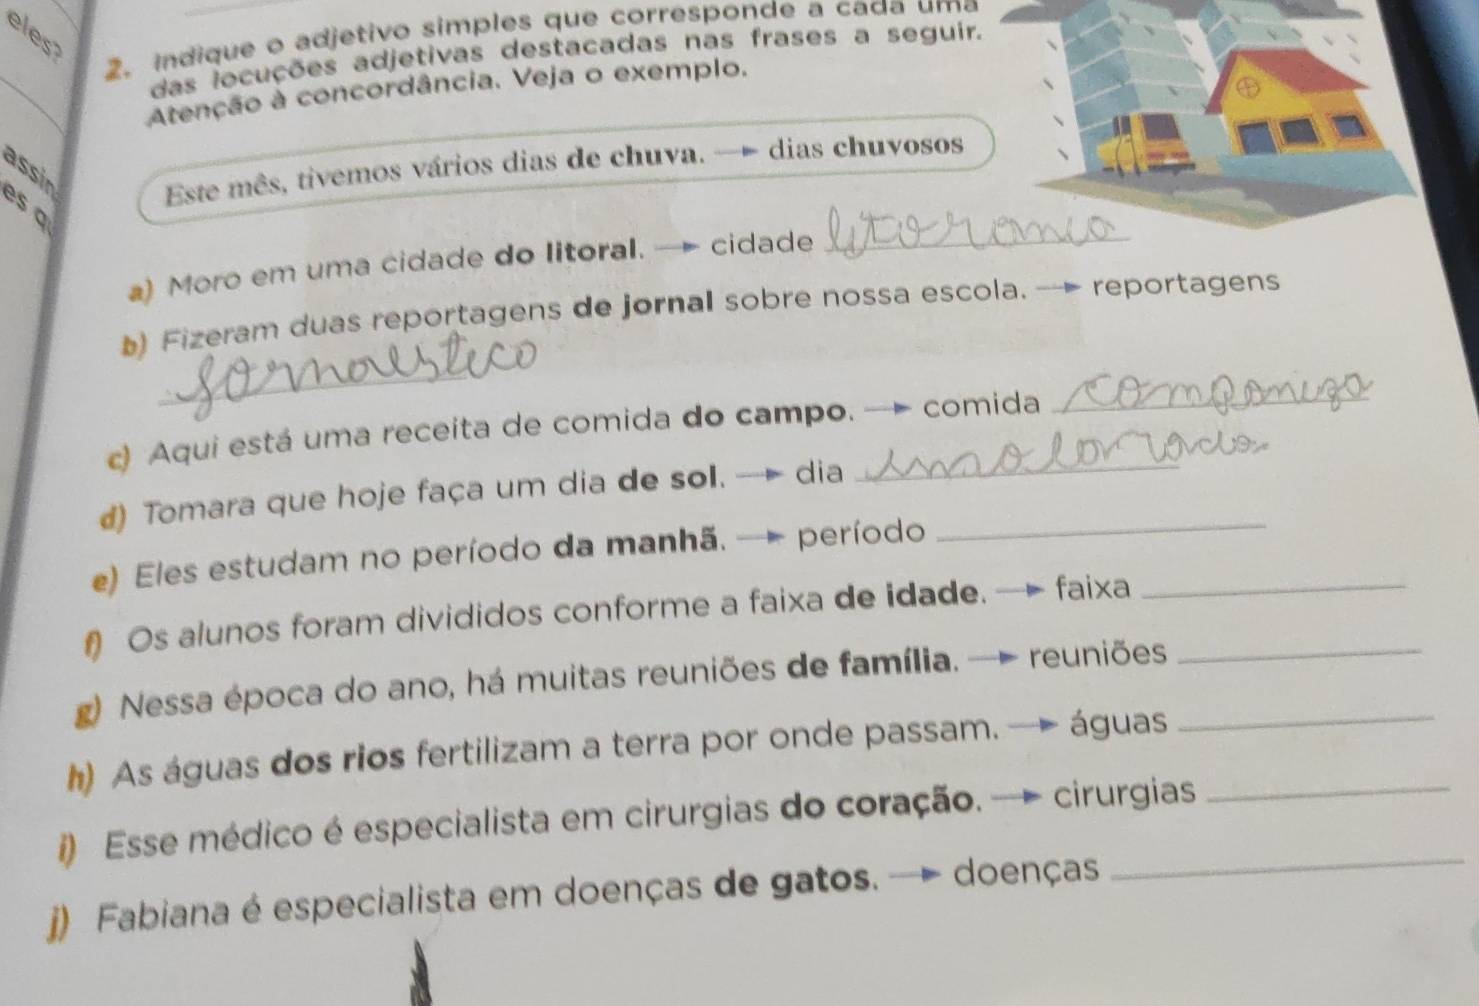 eles?
assin
es q
2. Indique o adjetivo simples que corresponde a cada uma
das locuções adjetivas destacadas nas frases a seguir.
Atenção à concordância. Veja o exemplo.
Este mês, tivemos vários dias de chuva. → dias chuvosos
a) Moro em uma cidade do litoral. → cidade
b) Fizeram duas reportagens de jornal sobre nossa escola. → reportagens
c) Aqui está uma receita de comida do campo. → comida
d) Tomara que hoje faça um dia de sol. → dia
e) Eles estudam no período da manhã. → período
f) Os alunos foram divididos conforme a faixa de idade. → faixa
g) Nessa época do ano, há muitas reuniões de família. → reuniões
h) As águas dos rios fertilizam a terra por onde passam. → águas
i) Esse médico é especialista em cirurgias do coração. → cirurgias
j) Fabiana é especialista em doenças de gatos. → doenças